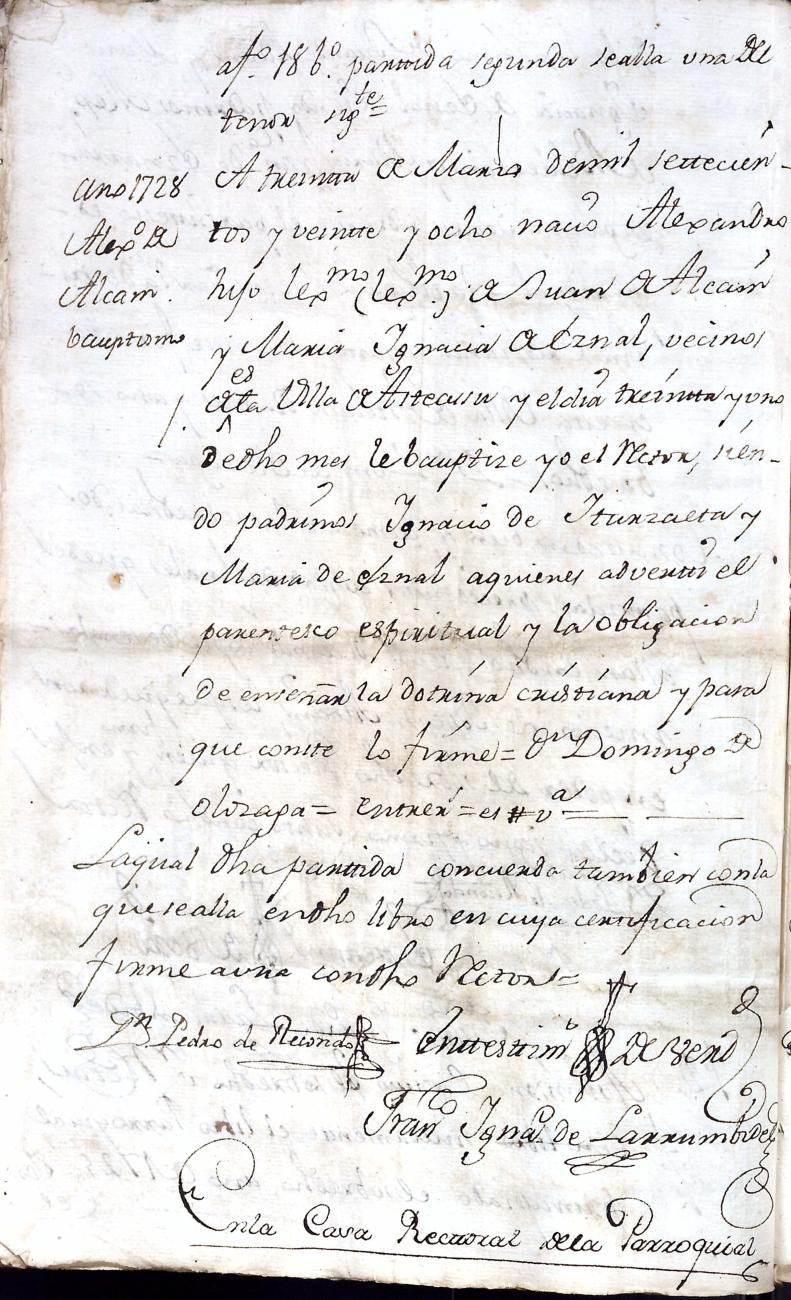 afo. 186o. parttida segunda sealla una del
tenor sigte=
A treintta de Marzo demil settecien-
tos y veintte y ocho nacio Alexandro
hijo lexmo (lexmo.) de Juan de Alcain
y Maria Ygnacia de Eznal, vecinos
desta Villa de Asteassu y el dia treintta y uno
de dho mes le bauptize yo el Rector, sien-
do padrinos Ygnacio de Iturzaeta y
Maria de Eznal aquienes adverti el
parentesco espiritual y la obligacion
de enseñar la dotrina cristiana y para
que conste lo firme = Dn Domingo de
olozaga = entrer = es # va
Laqual dha parttida concuerda tambien conla
quesealla endho libro en cuya certificacion
firme auna condho Rector=
Dn Pedro de Recondo
Enttesttimo de verd
Franco Ygnao. de Larrumbide
Enla Cassa Recttoral dela Parroquial
ano 1728
Alexo de
Alcain.
bauptismo